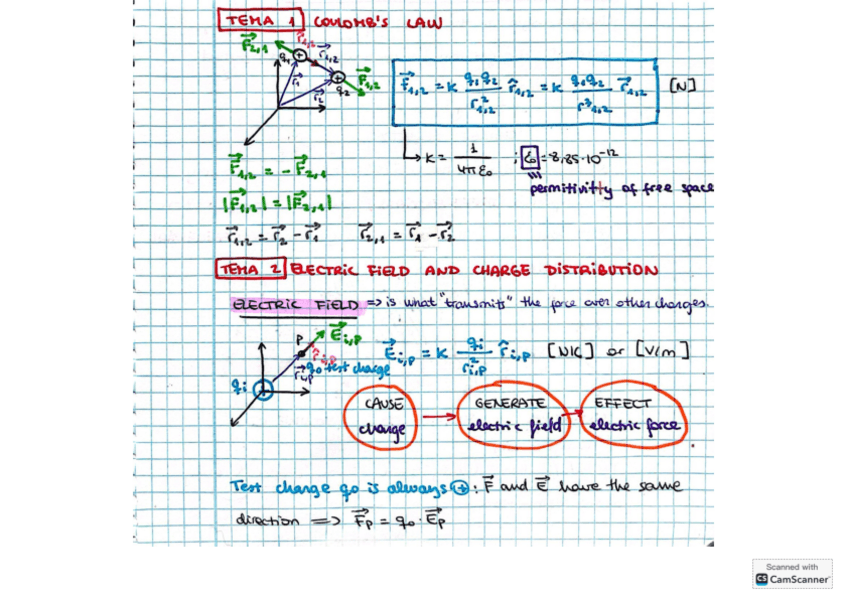 TEMA 1 COULOMB'S LAW
F⃗2,1 r̂1,2 r⃗1,2
q1 r⃗1 r⃗2 q2 F⃗1,2
F⃗1,2 = K q1q2/r²1,2 r̂1,2 = K q1q2/r³1,2 r⃗1,2 [N]
K = 1/4πε0 ; ε0 = 8,85·10⁻¹²
permitivitty of free space
F⃗1,2 = -F⃗2,1
|F⃗1,2| = |F⃗2,1|
r⃗1,2 = r⃗2 - r⃗1 r⃗2,1 = r⃗1 - r⃗2
TEMA 2 ELECTRIC FIELD AND CHARGE DISTRIBUTION
ELECTRIC FIELD => is what "transmits" the force over other charges.
P E⃗i,P
r̂i,P
r⃗i,P q0 test charge
qi
E⃗i,P = K qi/r²i,P r̂i,P [N/C] or [V/m]
CAUSE GENERATE EFFECT
charge electric field electric force
Test charge q0 is always ⊕: F⃗ and E⃗ have the same
direction => F⃗P = q0 · E⃗P
Scanned with
CS CamScanner